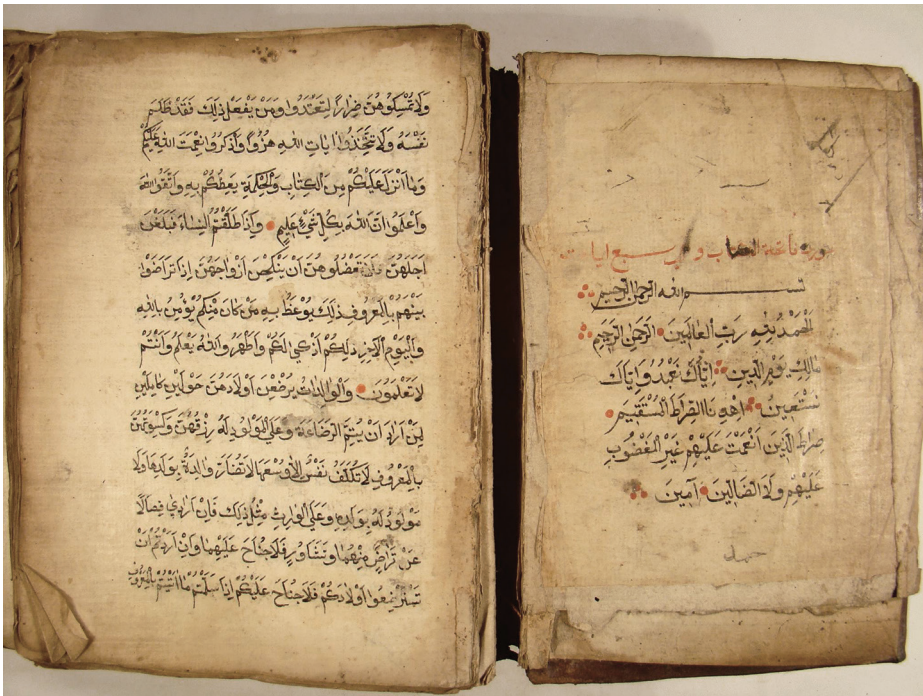 سورة فاتحة الكتاب وهي سبع ايات
بسم الله الرحمن الرحيم
الحمد لله رب العالمين الرحمن الرحيم
مالك يوم الدين اياك نعبد واياك
نستعين اهدنا الصراط المستقيم
صراط الذين انعمت عليهم غير المغضوب
عليهم ولا الضالين آمين
ولا تمسكوهن ضرارا لتعتدوا ومن يفعل ذلك فقد ظلم
نفسه ولا تتخذوا ايات الله هزوا واذكروا نعمت الله عليكم
وما انزل عليكم من الكتاب والحكمة يعظكم به واتقوا الله
واعلموا ان الله بكل شيء عليم واذا طلقتم النساء فبلغن
اجلهن فلا تعضلوهن ان ينكحن ازواجهن اذا تراضوا
بينهم بالمعروف ذلك يوعظ به من كان منكم يؤمن بالله
واليوم الاخر ذلكم ازكى لكم واطهر والله يعلم وانتم
لا تعلمون والوالدات يرضعن اولادهن حولين كاملين
لمن اراد ان يتم الرضاعة وعلى المولود له رزقهن وكسوتهن
بالمعروف لا تكلف نفس الا وسعها لا تضار والدة بولدها ولا
مولود له بولده وعلى الوارث مثل ذلك فان ارادا فصالا
عن تراض منهما وتشاور فلا جناح عليهما وان اردتم ان
تسترضعوا اولادكم فلا جناح عليكم اذا سلمتم ما اتيتم بالمعروف